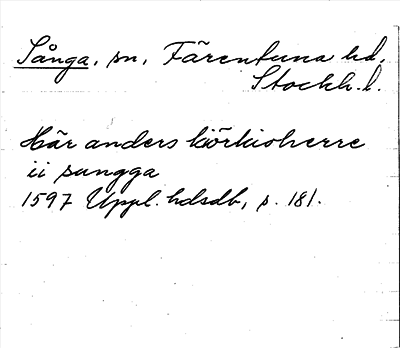 Sånga, sn, Färentuna hd,
Stockh. l.
Här anders körkioherre
ii sungga
1597 Uppl. hdsdb, s. 181.